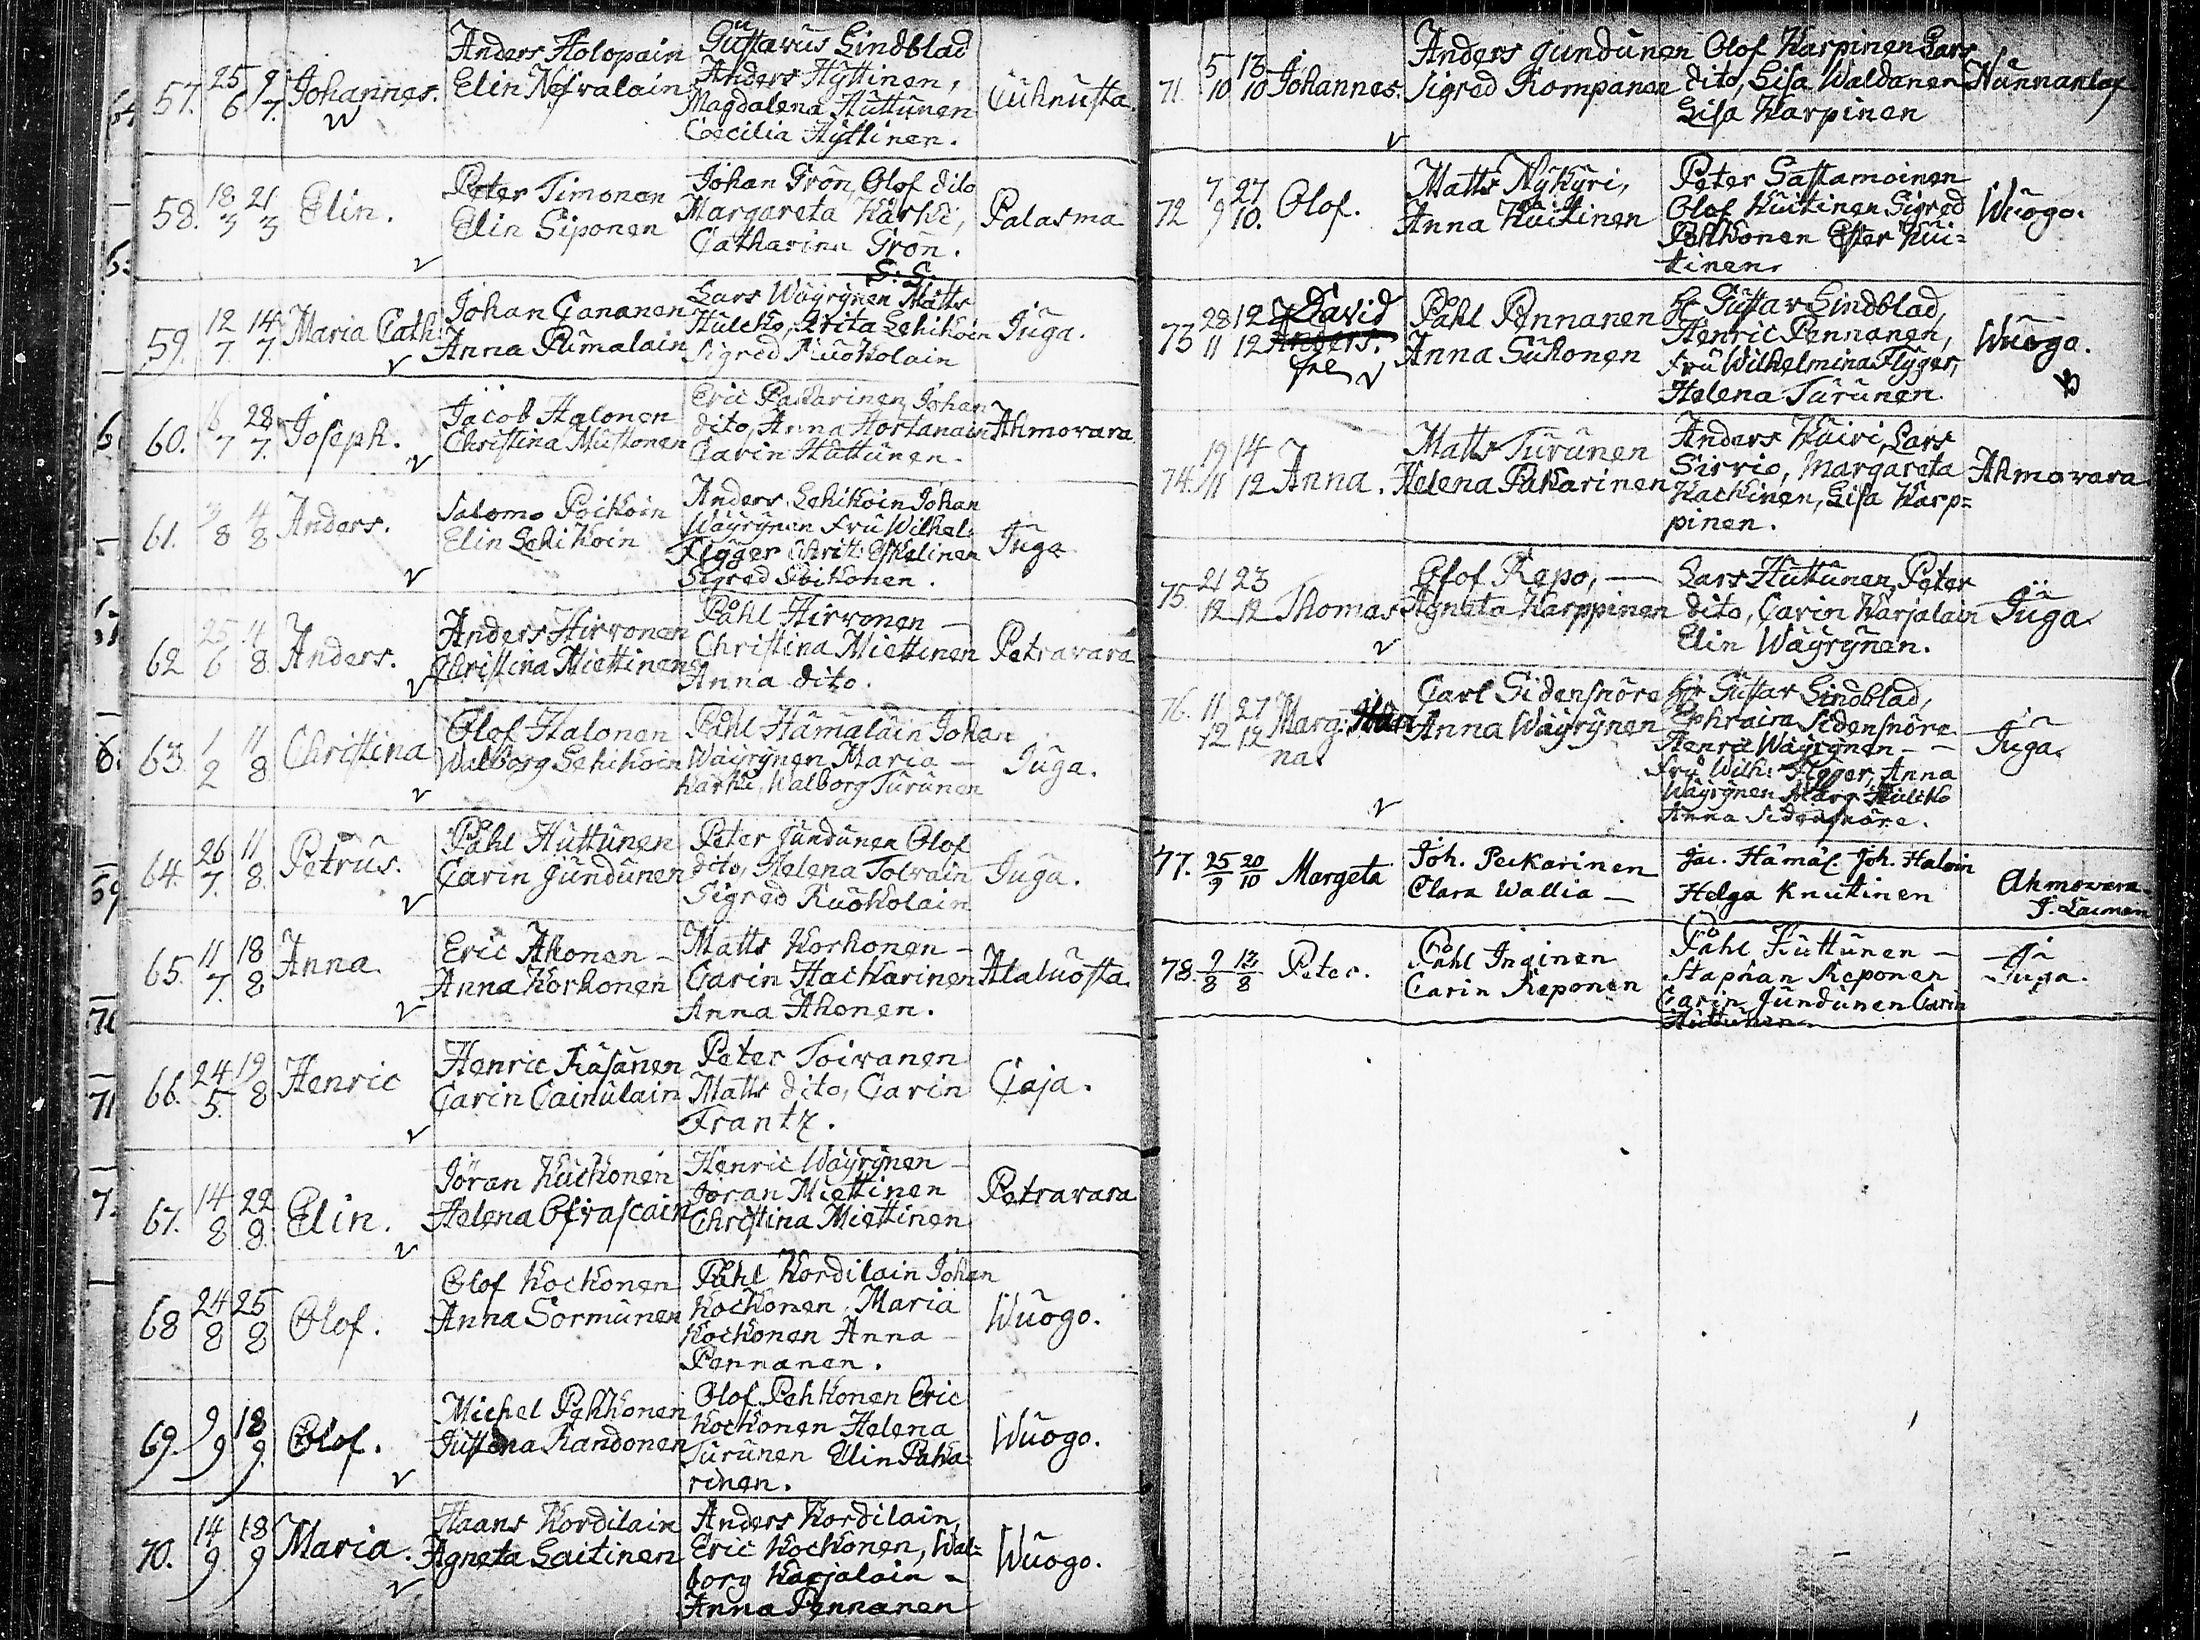 57. 25/6 9/7. Johannes. Anders Holopain Elin Nefvalain
Gustavus Lindblad
Anders Hyttinen,
Magdalena Huttunen
Cæcilia Hyttinen.
Cuhnusta
58. 18/3 21/3 Elin. Peter Timonen Elin Siponen
Johan Grön, Olof dito
Margareta Kärki,
Catharina Grön.
S: S:
Palasma
59. 12/7. 14/7. Maria Cath: Johan Cananen Anna Rumalain
Lars Wäyrynen Matts
Hulcko, Brita Lehikoin
Sigred Ruokolain
Juga.
60. 16/7 28/7. Joseph. Jacob Halonen Christina Mustonen
Eric Packarinen Johan
dito, Anna Hortanain
Carin Huttunen.
Ahmovara
61. 3/8 4/8 Anders. Salomo Poikoin Elin Lehikoin
Anders Lehikoin Johan
Wäyrynen Fru Wilhel:
Flöger Christ: Eskelinen
Sigred Poikonen.
Juga
62 25/6 4/8. Anders. Anders Hirvonen Christina Miettinen
Påhl Hirvonen —
Christina Miettinen
Anna dito.
Petravara
63. 1/2 11/8 Christina Olof Halonen Walborg Lehikoin
Påhl Hämäläin Johan
Wäyrynen Maria —
Kärki, Walborg Turunen
Juga.
64. 26/7. 11/8. Petrus. Påhl Huttunen Carin Jundunen
Peter Jundunen Olof
dito, Helena Tolvain
Sigred Ruokolain
Juga.
65. 11/7. 18/8 Anna. Eric Ahonen — Anna Korhonen
Matts Korhonen —
Carin Hackarinen
Anna Ahonen.
Halaluosta.
66. 24/5. 19/8 Henric Henric Räsänen Carin Cainulain
Peter Toivanen
Matts dito, Carin
Frantz.
Caja.
67. 14/8 22/8. Elin. Jöran Kuckonen
Henric Wäyrynen —
Jöran Miettinen
Christina Miettinen
Petravara
68 24/8 25/8 Olof. Olof Kockonen Anna Sormunen
Påhl Kordilain Johan
Kockonen, Maria
Kockonen Anna —
Pennanen.
Wuogo.
69. 9/9 18/9. Olof. Michel Pehkonen Justina Randonen
Olof Pehkonen Eric
Kockonen Helena
Turunen Elin Paka:
rinen.
Wuogo.
70. 14/9. 18/9 Maria. Haans Kordilain Agneta Laitinen
Anders Kordilain,
Eric Kockonen, Wal=
borg Karjalain —
Anna Pennanen
Wuogo.
71. 5/10 13/10 Johannes. Anders Jundunen Sigred Rompanen
Olof Karpinen Lars
dito, Lisa Waldanen
Lisa Karpinen
Nunnanlax
72 7/9 27/10. Olof. Matts Nykyri, Anna Kuitinen
Peter Sastamoinen
Olof Kuitinen Sigred
Pehkonen Ester Kui=
tinen.
Wuogo.
73 28/11 12/12 David Anders. Påhl Pennanen Anna Suhonen
Hr Gustav Lindblad,
Henric Pennanen,
Fru Wilhelmina Flyger,
Helena Turunen.
Wuogo.
74. 19/11 14/12 Anna. Matts Turunen Helena Pakarinen
Anders Kuiri, Lars
Sirvio, Margareta
Kackinen, Lisa Karp=
pinen.
Ahmovara
75. 21/12 23/12 Thomas Olof Repo, — Agneta Karppinen
Lars Huttunen, Peter
dito, Carin Karjalain
Elin Wäyrynen.
Juga.
76. 11/12 27/12 Marg: na. Carl Sidensnöre Anna Wäyrynen
Hr Gustav Lindblad,
Ephraim Sidensnöre
Henric Wäyrynen — —
Fru Wilh: Flöger, Anna
Wäyrynen Marg: Hulcko
Anna Sidensnöre.
Juga.
77. 25/9 20/10 Margeta Joh. Packarinen Clara Wallia —
Jac. Hämäl. Joh. Haloin
Helga Knutinen
Ahmovara
78. 9/8 13/8 Peter. Påhl Inginen Carin Reponen
Påhl Huttunen —
Staphan Reponen
Carin Jundunen Carin
Huttunen.
Juga.